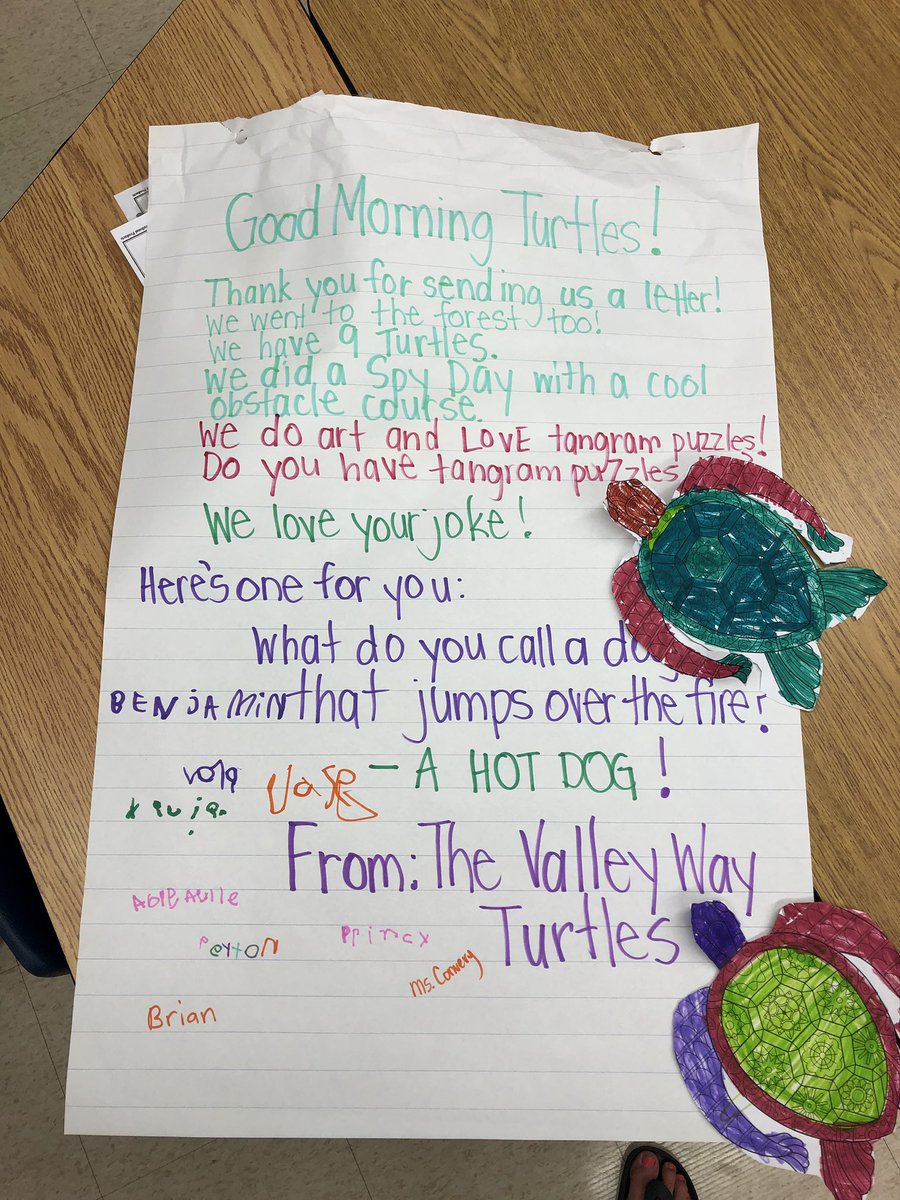 Good Morning Turtles!
Thank you for sending us a letter!
We went to the forest too!
We have 9 Turtles.
We did a Spy Day with a cool
obstacle course.
We do art and LOVE tangram puzzles!
Do you have tangram puzzles
We love your joke!
Here's one for you:
What do you call a
BENJAMIN that jumps over the fire?
- A HOT DOG!
From: The Valley Way
Turtles
Peyton
Ms. Conwery
Brian